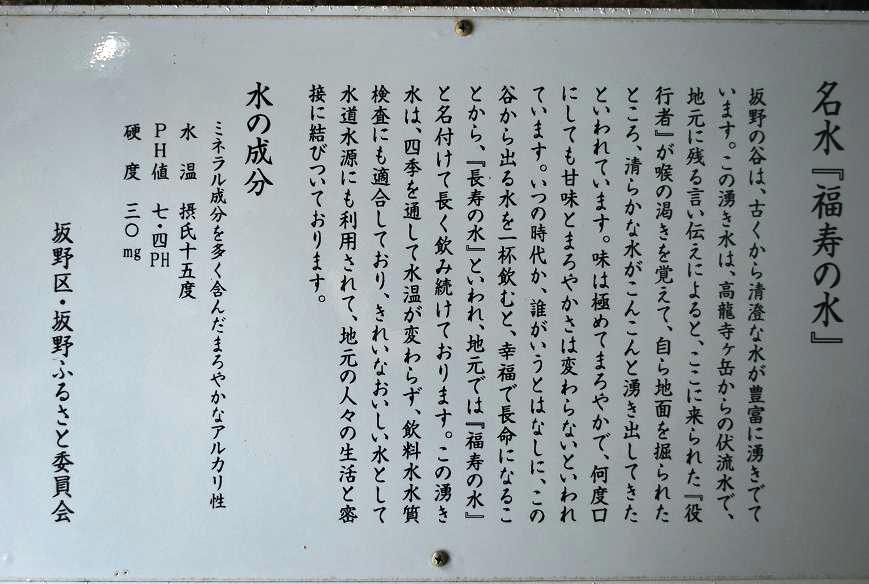 名水『福寿の水』
坂野の谷は、古くから清澄な水が豊富に湧きでて
います。この湧き水は、高龍寺ヶ岳からの伏流水で、
地元に残る言い伝えによると、ここに来られた『役
行者』が喉の渇きを覚えて、自ら地面を掘られた
ところ、清らかな水がこんこんと湧き出してきた
といわれています。味は極めてまろやかで、何度口
にしても甘味とまろやかさは変わらないといわれ
ています。いつの時代か、誰がいうとはなしに、この
谷から出る水を一杯飲むと、幸福で長命になるこ
とから、『長寿の水』といわれ、地元では『福寿の水』
と名付けて長く飲み続けております。この湧き
水は、四季を通して水温が変わらず、飲料水水質
検査にも適合しており、きれいなおいしい水として
水道水源にも利用されて、地元の人々の生活と密
接に結びついております。
水の成分
ミネラル成分を多く含んだまろやかなアルカリ性
水 温 摂氏十五度
PH値 七・四PH
硬 度 三〇mg
坂野区・坂野ふるさと委員会